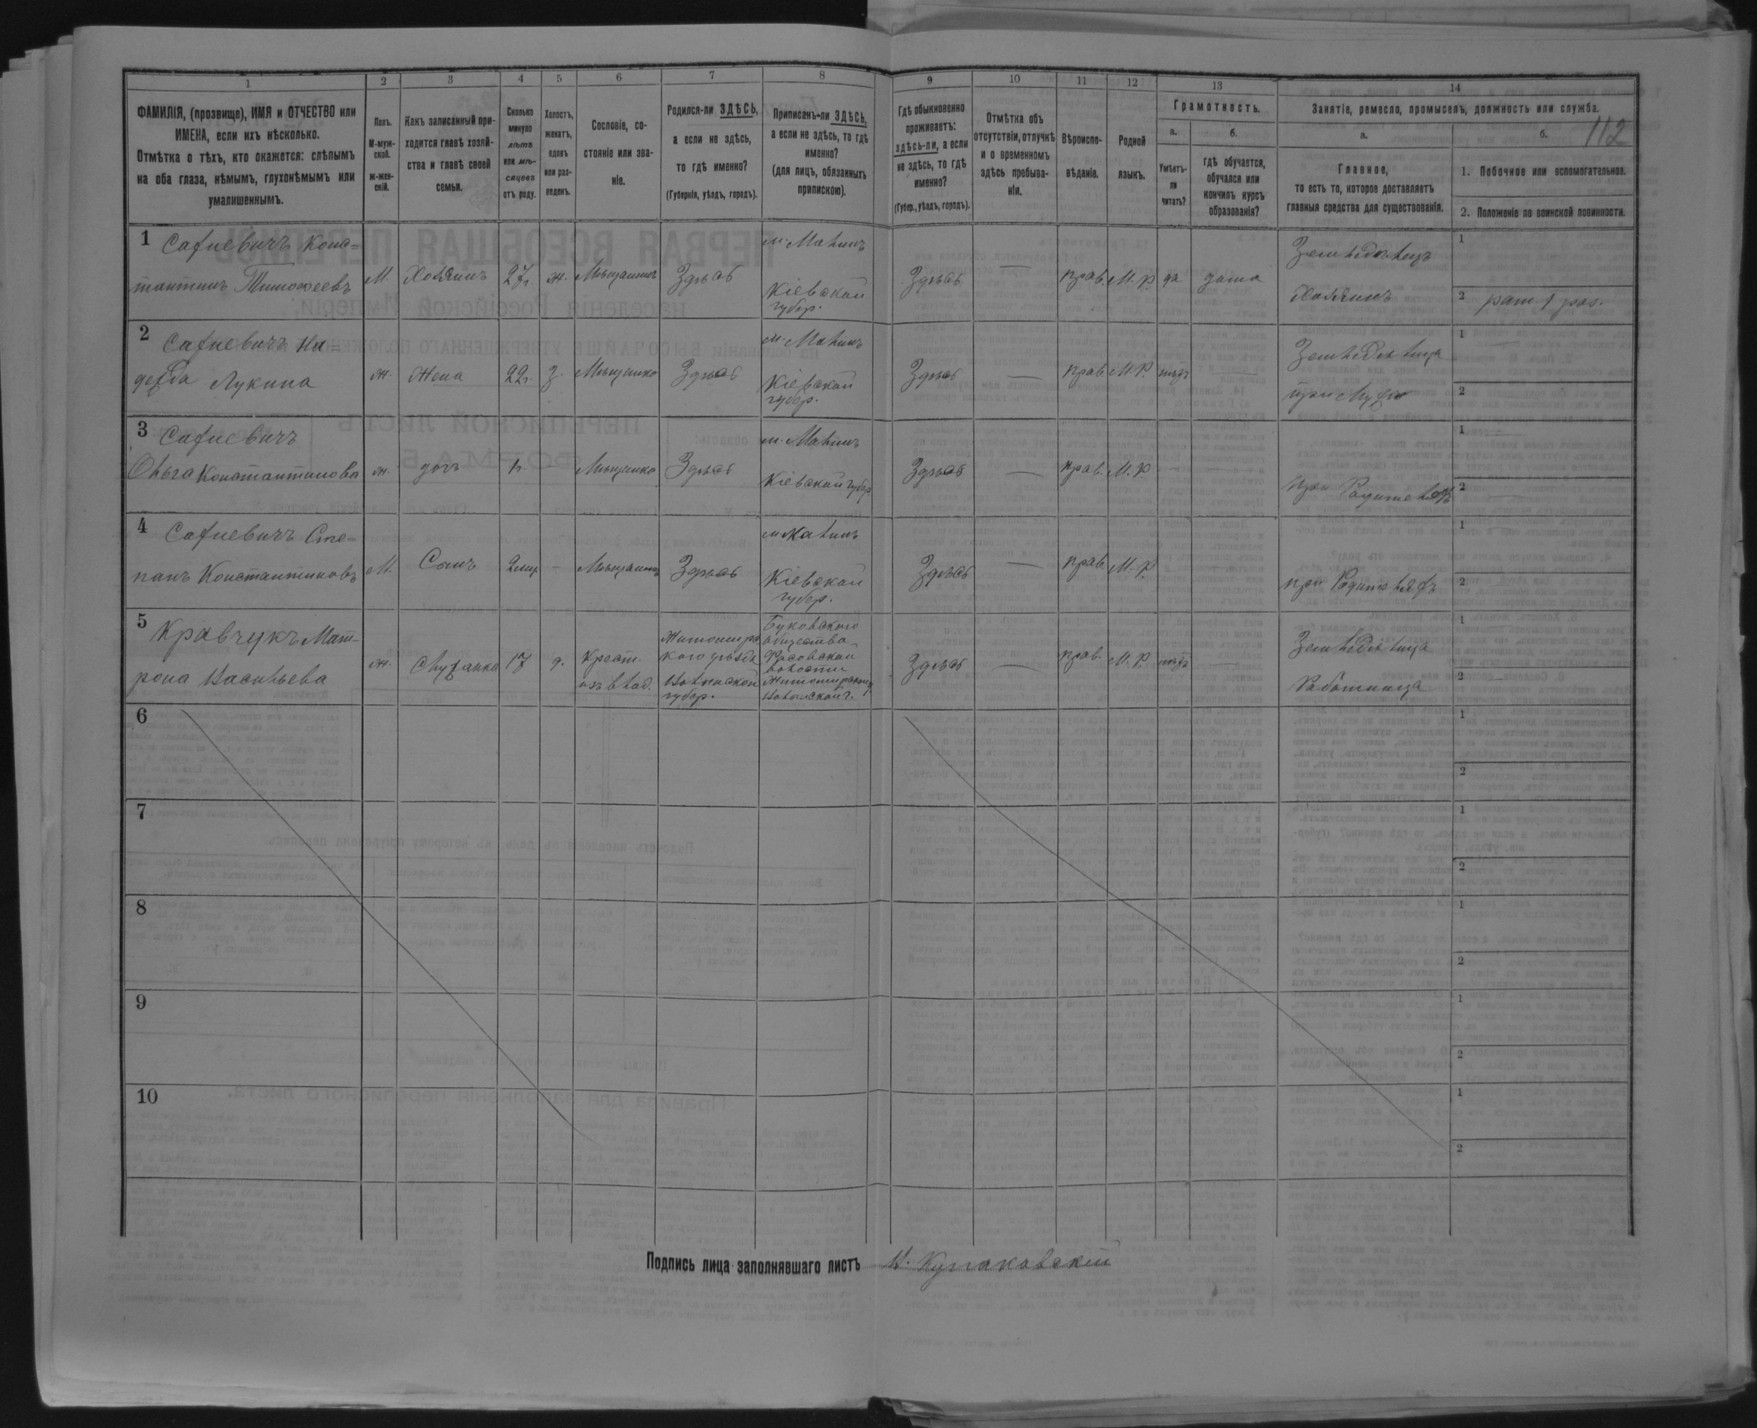 1 2 3 4 5 6 7 8 9 10 11 12 13 14
ФАМИЛІЯ, (прозвище), ИМЯ и ОТЧЕСТВО или
ИМЕНА, если ихъ нѣсколько.
Отмѣтка о тѣхъ, кто окажется: слѣпымъ
на оба глаза, нѣмымъ, глухонѣмымъ или
умалишеннымъ.
Полъ.
М-муж-
ской.
ж-жен-
скій.
Какъ записанный при-
ходится главѣ хозяй-
ства и главѣ своей
семьи.
Сколько
минуло
лѣтъ
или мѣ-
сяцевъ
отъ роду.
Холостъ,
женатъ,
вдовъ
или раз-
веденъ.
Сословіе, со-
стояніе или зва-
ніе.
Родился-ли ЗДѢСЬ,
а если не здѣсь,
то гдѣ именно?
(Губернія, уѣздъ, городъ).
Приписанъ-ли ЗДѢСЬ,
а если не здѣсь, то гдѣ
именно?
(для лицъ, обязанныхъ
припискою).
Гдѣ обыкновенно
проживаетъ:
здѣсь-ли, а если
не здѣсь, то гдѣ
именно?
(Губер., уѣздъ, городъ).
Отмѣтка объ
отсутствіи, отлучкѣ
и о временномъ
здѣсь пребыва-
ніи.
Вѣроиспо-
вѣданіе.
Родной
языкъ.
Грамотность.
а.
Умѣетъ-
ли
читать?
б.
гдѣ обучается,
обучался или
кончилъ курсъ
образованія?
Занятіе, ремесло, промыселъ, должность или служба.
а.
Главное,
то есть то, которое доставляетъ
главныя средства для существованія.
б.
112
1. Побочное или вспомогательное.
2. Положеніе по воинской повинности.
1 Сафневичъ Конс-
тантинъ Тимофеевъ
М. Хозяинъ 27г. ж. Мѣщанинъ Здѣсь
м. Малинъ
Кіевской
губер.
Здѣсь — прав. М. Р. да дома
Земледѣлецъ
Хозяинъ
1
2 рат. 1 раз.
2 Сафневичъ На-
дежда Лукина
ж. Жена 22г. З. Мѣщанка Здѣсь
м. Малинъ
Кіевской
губер.
Здѣсь — прав. М. Р. нѣтъ —
Земледѣлица
при Мужѣ
1 —
2
3 Сафневичъ
Ольга Константинова
ж. дочь 1г. — Мѣщанка Здѣсь
м. Малинъ
Кіевской губер
Здѣсь — прав. М. Р — —
при Родителяхъ
1 —
2 —
4 Сафневичъ Сте-
панъ Константиновъ
М. Сынъ 2мц — Мѣщанинъ Здѣсь
м. Малинъ
Кіевской
губер.
Здѣсь — прав. М. Р.
при Родителяхъ
1
2
5 Кравчукъ Мат-
рона Васильева
ж. Служанка 17 д.
Крест.
изъ влад.
Житомирс
кого уѣзда
Волынской
губер.
общества
волости
Волынской г.
Здѣсь — прав. М. Р. нѣтъ
Земледѣлица
Работница
1
2 —
6
1
2
7
1
2
8
1
2
9
1
2
10
1
2
Подпись лица заполнявшаго листъ